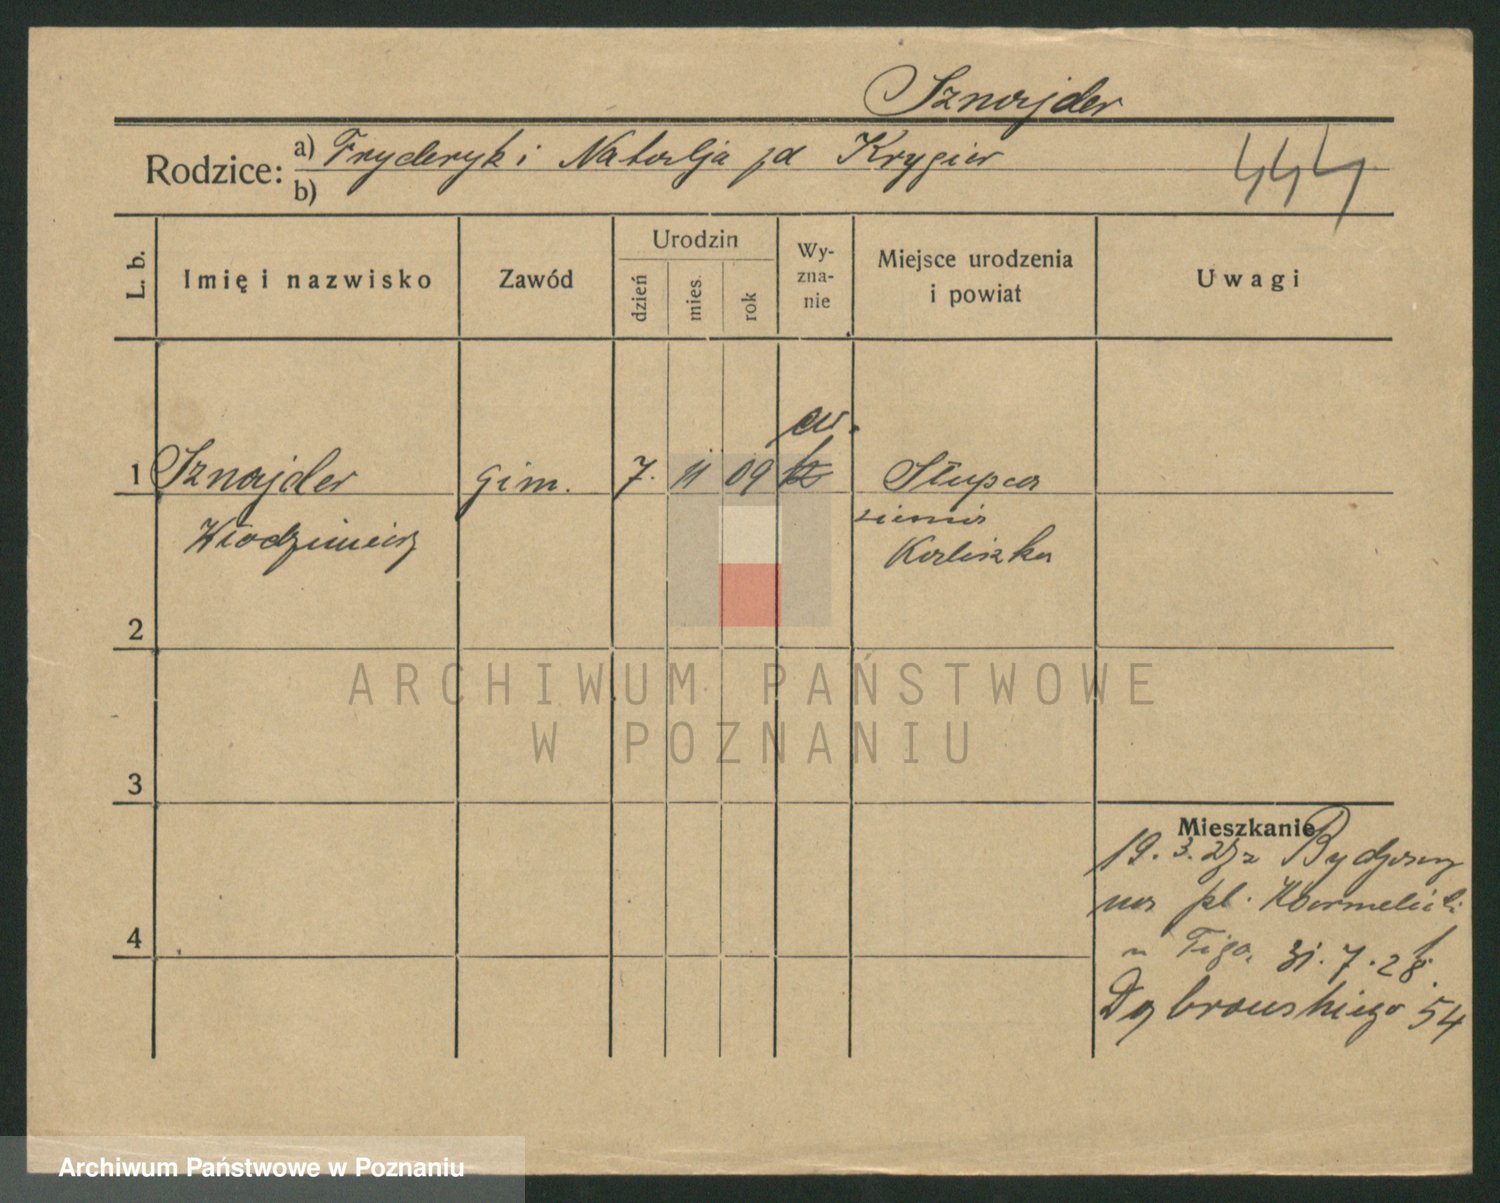 Sznajder
Rodzice: a) Fryderyk i Natalja zd Krygier
b)
444
L. b.
Imię i nazwisko
Zawód
Urodzin
dzień
mies.
rok
Wy-
zna-
nie
Miejsce urodzenia
i powiat
Uwagi
ew.
1 Sznajder gim. 7. 11 09 kt Słupca
Włodzimierz
ziemia
Kaliszka
2
3
4
Mieszkanie
19. 3. z Bydgoszczy
na pl. Karmelicki
u 31. 7. 28.
Dąbrowskiego 54
ARCHIWUM PAŃSTWOWE
W POZNANIU
Archiwum Państwowe w Poznaniu